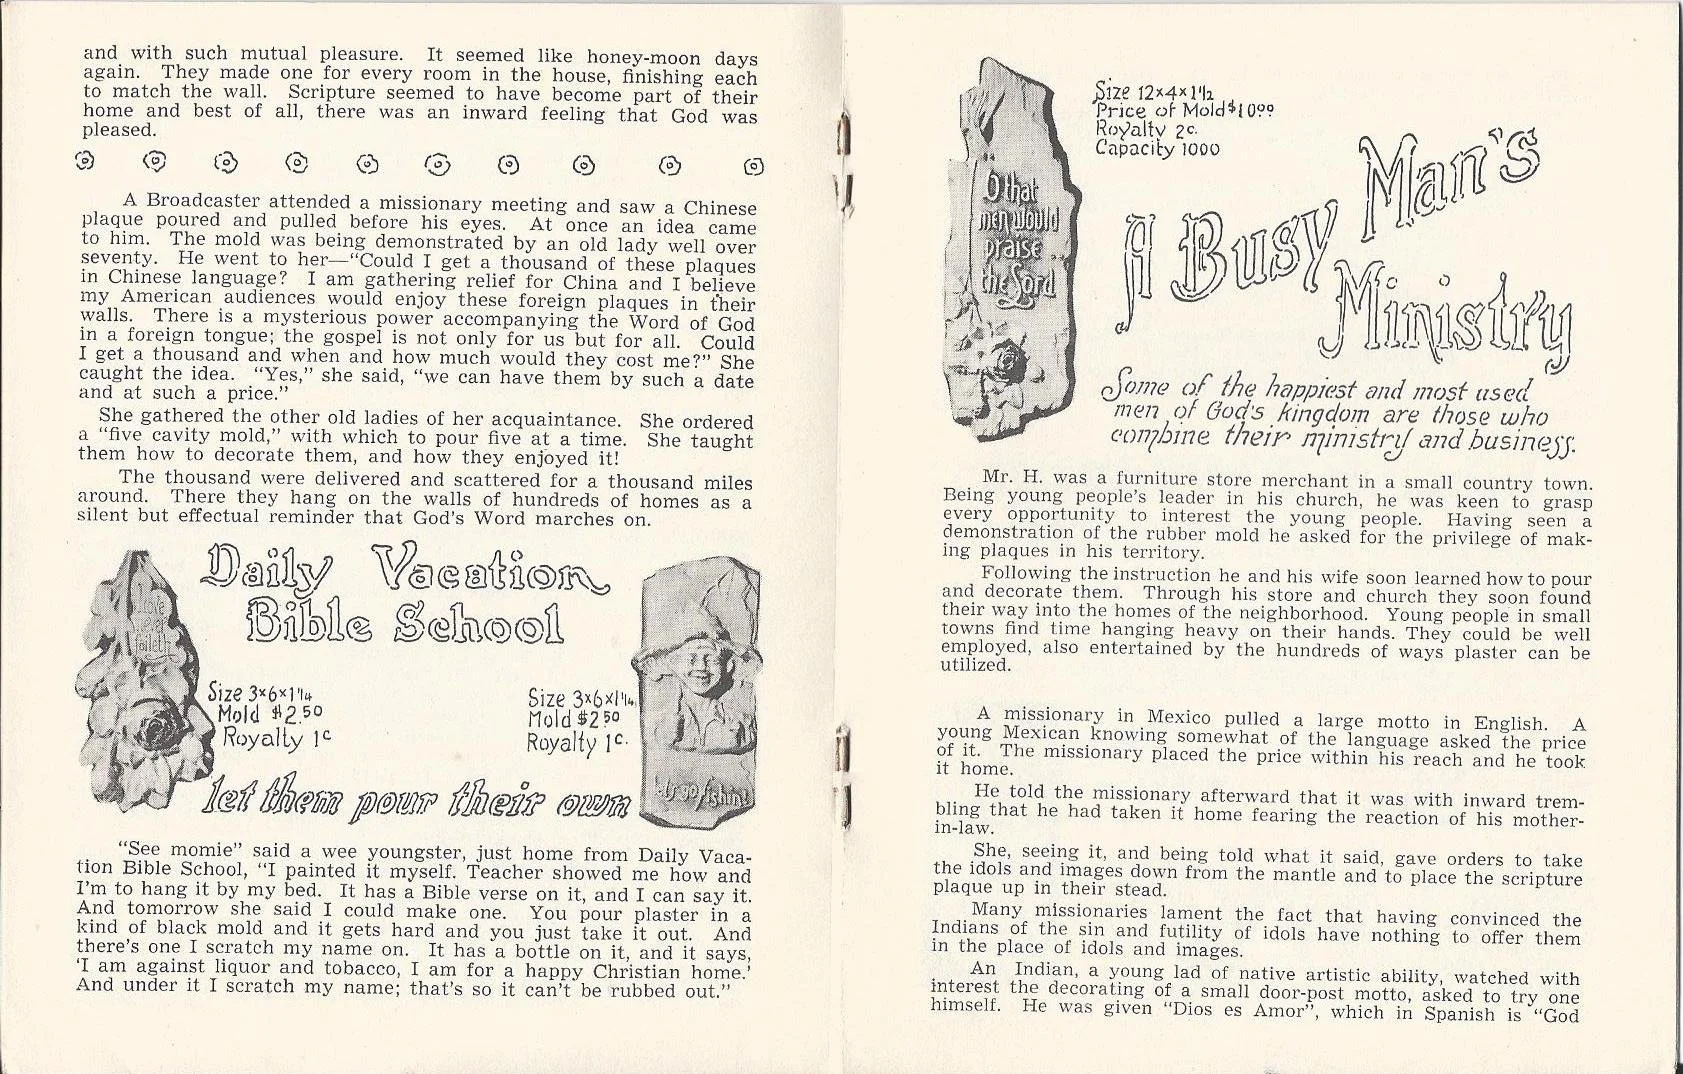 and with such mutual pleasure. It seemed like honey-moon days
again. They made one for every room in the house, finishing each
to match the wall. Scripture seemed to have become part of their
home and best of all, there was an inward feeling that God was
pleased.
A Broadcaster attended a missionary meeting and saw a Chinese
plaque poured and pulled before his eyes. At once an idea came
to him. The mold was being demonstrated by an old lady well over
seventy. He went to her—“Could I get a thousand of these plaques
in Chinese language? I am gathering relief for China and I believe
my American audiences would enjoy these foreign plaques in their
walls. There is a mysterious power accompanying the Word of God
in a foreign tongue; the gospel is not only for us but for all. Could
I get a thousand and when and how much would they cost me?” She
caught the idea. “Yes,” she said, “we can have them by such a date
and at such a price.”
She gathered the other old ladies of her acquaintance. She ordered
a “five cavity mold,” with which to pour five at a time. She taught
them how to decorate them, and how they enjoyed it!
The thousand were delivered and scattered for a thousand miles
around. There they hang on the walls of hundreds of homes as a
silent but effectual reminder that God's Word marches on.
Daily Vacation
Bible School
Love
faileth
Size 3x6x1¼
Mold $2.50
Royalty 1c
Size 3x6x1¼
Mold $2.50
Royalty 1c.
let's go fishin'
let them pour their own
“See momie” said a wee youngster, just home from Daily Vaca-
tion Bible School, “I painted it myself. Teacher showed me how and
I'm to hang it by my bed. It has a Bible verse on it, and I can say it.
And tomorrow she said I could make one. You pour plaster in a
kind of black mold and it gets hard and you just take it out. And
there's one I scratch my name on. It has a bottle on it, and it says,
‘I am against liquor and tobacco, I am for a happy Christian home.’
And under it I scratch my name; that's so it can't be rubbed out.”
O that
men would
praise
the Lord
Size 12x4x1½
Price of Mold $10.00
Royalty 2c.
Capacity 1000
A Busy Man's
Ministry
Some of the happiest and most used
men of God's kingdom are those who
combine their ministry and business.
Mr. H. was a furniture store merchant in a small country town.
Being young people's leader in his church, he was keen to grasp
every opportunity to interest the young people. Having seen a
demonstration of the rubber mold he asked for the privilege of mak-
ing plaques in his territory.
Following the instruction he and his wife soon learned how to pour
and decorate them. Through his store and church they soon found
their way into the homes of the neighborhood. Young people in small
towns find time hanging heavy on their hands. They could be well
employed, also entertained by the hundreds of ways plaster can be
utilized.
A missionary in Mexico pulled a large motto in English. A
young Mexican knowing somewhat of the language asked the price
of it. The missionary placed the price within his reach and he took
it home.
He told the missionary afterward that it was with inward trem-
bling that he had taken it home fearing the reaction of his mother-
in-law.
She, seeing it, and being told what it said, gave orders to take
the idols and images down from the mantle and to place the scripture
plaque up in their stead.
Many missionaries lament the fact that having convinced the
Indians of the sin and futility of idols have nothing to offer them
in the place of idols and images.
An Indian, a young lad of native artistic ability, watched with
interest the decorating of a small door-post motto, asked to try one
himself. He was given “Dios es Amor”, which in Spanish is “God